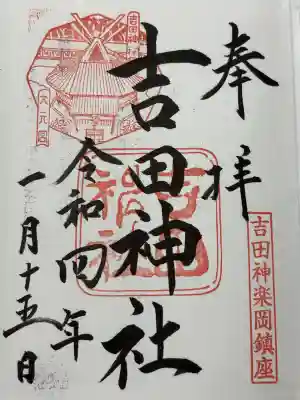 奉拝
吉田神楽岡鎮座
吉田神社
吉田神社
令和四年
一月十五日
大元宮